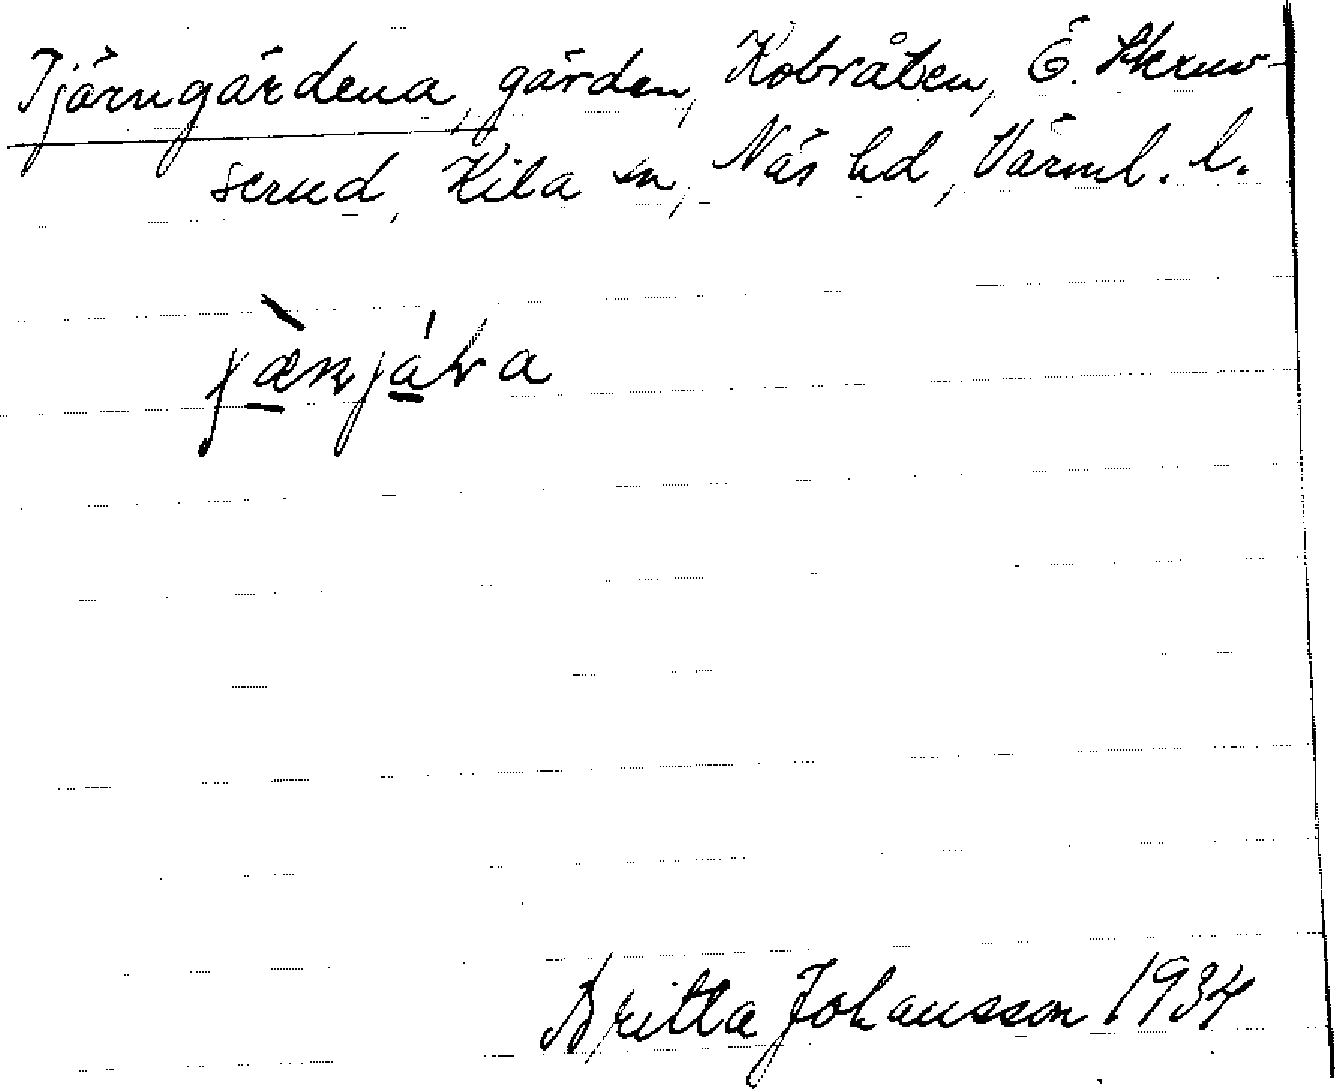 Tjärngärdena, gärden, Kobråten, Ö. Skruv-
serud, Kila sn, Näs hd, Värml. l.
Britta Johansson 1934